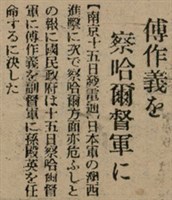 傅作義を
察哈爾督軍に
【南京十五日發電通】日本軍の湖西
進擊に次で察哈爾方面亦危ふしと
の報に國民政府は十五日察哈爾督
軍に傅作義を副督軍に孫殿英を任
命するに決した